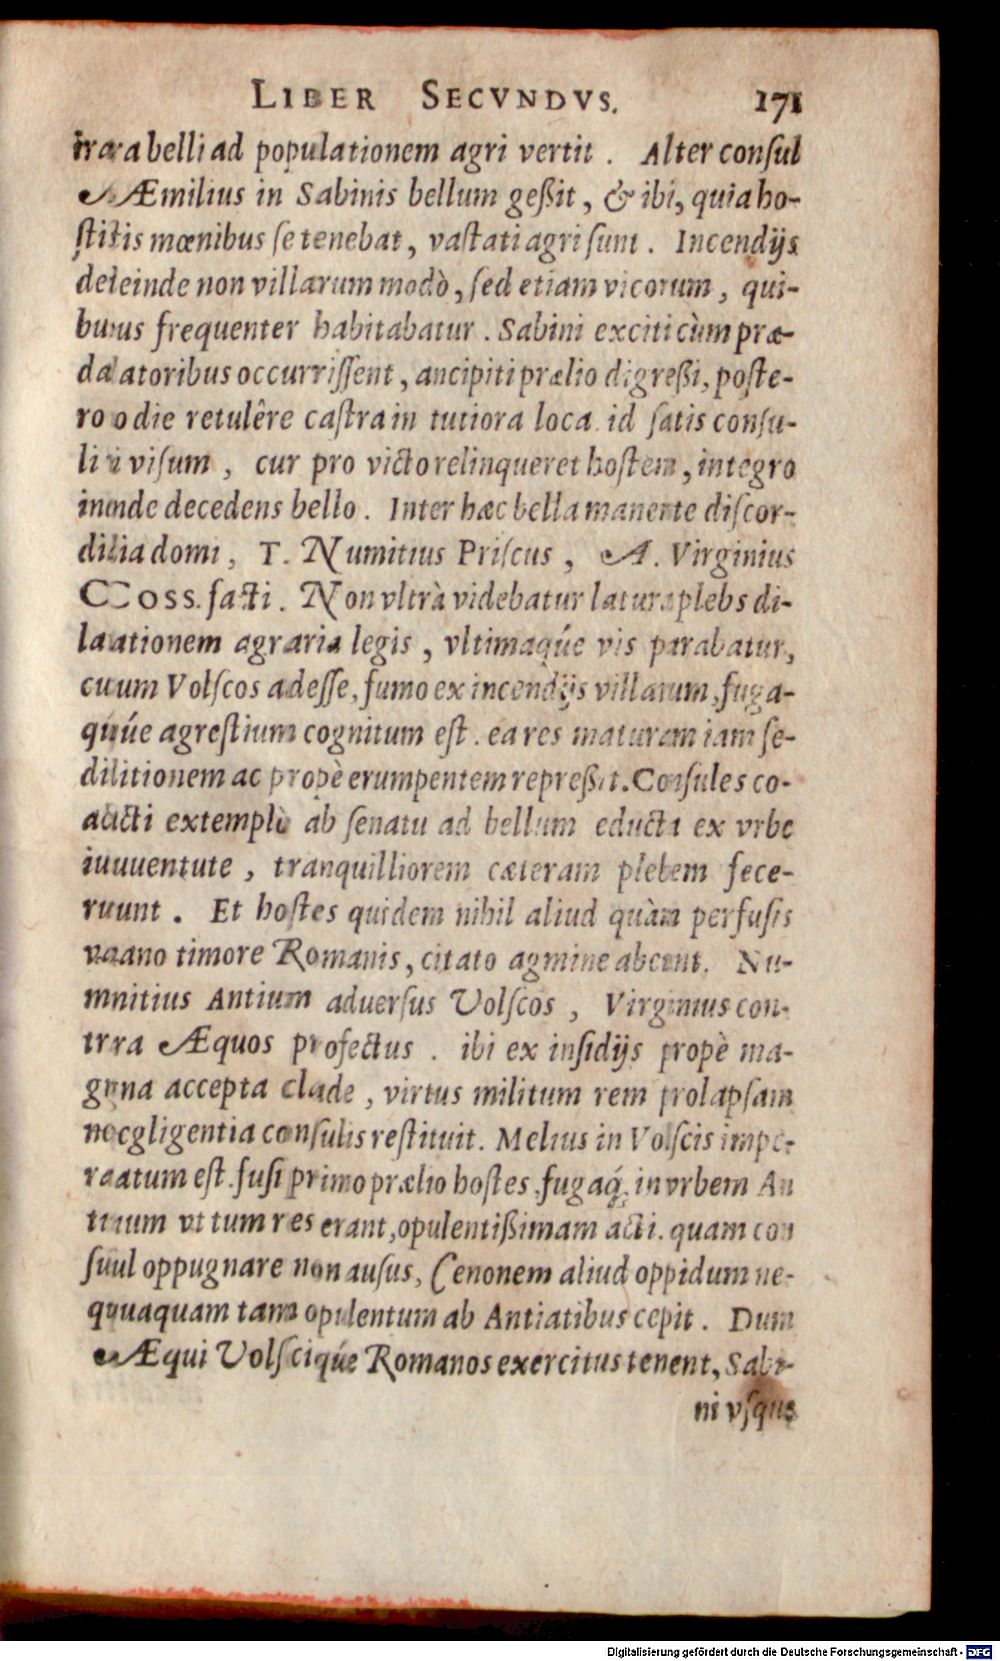 LIBER SECVNDVS. 171
ira belli ad populationem agri vertit. Alter consul
Æmilius in Sabinis bellum geßit, & ibi, quia ho-
stis mœnibus se tenebat, vastati agri sunt. Incendijs
deinde non villarum modò, sed etiam vicorum, qui-
bus frequenter habitabatur. Sabini exciti cùm præ-
datoribus occurrissent, ancipiti prælio digreßi, poste-
ro die retulêre castra in tutiora loca. id satis consu-
li visum, cur pro victo relinqueret hostem, integro
inde decedens bello. Inter hæc bella manente discor-
dia domi, T. Numitius Priscus, A. Virginius
COSS. facti. Non vltrà videbatur latura plebs di-
lationem agraria legis, vltimaqúe vis parabatur,
cum Volscos adesse, fumo ex incendijs villarum, fuga-
qúe agrestium cognitum est. ea res maturam iam se-
ditionem ac propè erumpentem repreßit. Consules co-
acti extemplò ab senatu ad bellum educta ex vrbe
iuuentute, tranquilliorem cæteram plebem fece-
runt. Et hostes quidem nihil aliud quàm perfusis
vano timore Romanis, citato agmine abeunt. Nu-
mitius Antium aduersus Volscos, Virginius con-
tra Æquos profectus. ibi ex insidijs propè ma-
gna accepta clade, virtus militum rem prolapsam
negligentia consulis restituit. Melius in Volscis impe-
ratum est. fusi primo prælio hostes, fugaq́; in vrbem An
tium vt tum res erant, opulentißimam acti. quam con
sul oppugnare non ausus, Cenonem aliud oppidum ne-
quaquam tam opulentum ab Antiatibus cepit. Dum
Æqui Volsciqúe Romanos exercitus tenent, Sabi-
ni vsque
Digitalisierung gefördert durch die Deutsche Forschungsgemeinschaft - DFG